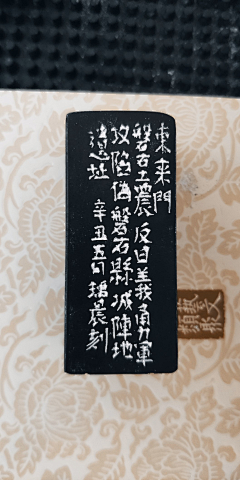 東來門
磐石土震反白並我勇軍
攻陷偽磐石縣城陣地
遺址
辛丑五旬 瑞晨刻